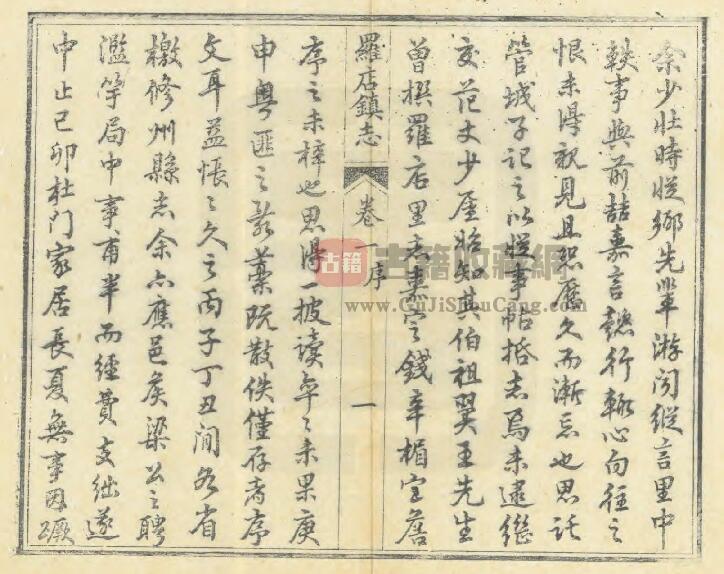 余少壯時從鄉先輩游間縱言里中
軼事與前喆嘉言懿行輒心向往之
恨未得親見且積歷久而漸忘也思託
管城子記之以從事帖括志焉未逮繼
交范丈少厓始知其伯祖翼王先生
曾撰羅店里志嘉定錢辛楣宮詹
羅店鎮志 卷一序 一
序之未梓也思得一披讀卒〻未果庚
申粵匪之亂藁既散佚僅存者序
文耳益悵〻久之丙子丁丑間各省
檄修州縣志余亦應邑矦梁公之聘
濫竽局中事甫半而經費支絀遂
中止己卯杜門家居長夏無事因
古籍
古籍收藏網
www.GuJiShouCang.com